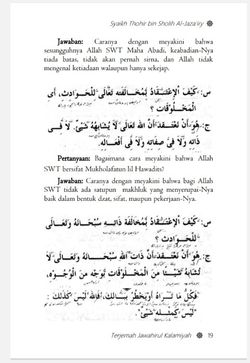 Syaikh Thohir bin Sholih Al-Jaza'iry
Jawaban: Caranya dengan meyakini bahwa
sesungguhnya Allah SWT Maha Abadi, keabadian-Nya
tiada batas, tidak akan pernah sirna, dan Allah tidak
mengenal ketiadaan walaupun hanya sekejap.
س: كَيْفَ الْاِعْتِقَادُ بِمُخَالَفَتِهِ تَعَالَى لِلْحَوَادِثِ، أَيِ
الْمَخْلُوْقَاتِ ؟
ج: هُوَ أَنْ نَعْتَقِدَ أَنَّ اللهَ تَعَالَى لَا يُشَابِهُهُ شَيْئٌ. لَا فِى
ذَاتِهِ وَلَا فِى صِفَاتِهِ وَلَا فِى أَفْعَالِهِ.
Pertanyaan: Bagaimana cara meyakini bahwa Allah
SWT bersifat Mukholafatun lil Hawadits?
Jawaban: Caranya dengan meyakini bahwa bagi Allah
SWT tidak ada satupun makhluk yang menyerupai-Nya
baik dalam bentuk dzat, sifat, maupun pekerjaan-Nya.
س: كَيْفَ الْاِعْتِقَادُ بِمُخَالَفَةِ ذَاتِهِ سُبْحَانَهُ وَتَعَالَى
لِلْحَوَادِثِ ؟
ج: هُوَ أَنْ نَعْتَقِدَ أَنَّ ذَاتَ اللهِ سُبْحَانَهُ وَتَعَالَى لَا
تُشَابِهُ شَيْئًا مِنَ الْمَخْلُوْقَاتِ بِوَجْهٍ مِنَ الْوُجُوْهِ،
فَكُلُّ مَا تَرَاهُ أَوْيَخْطُرُ بِبَالِكَ، فَاللهُ لَيْسَ كَذٰلِكَ :
لَيْسَ كَمِثْلِهِ شَيْئٌ
Terjemah Jawahirul Kalamiyah 19